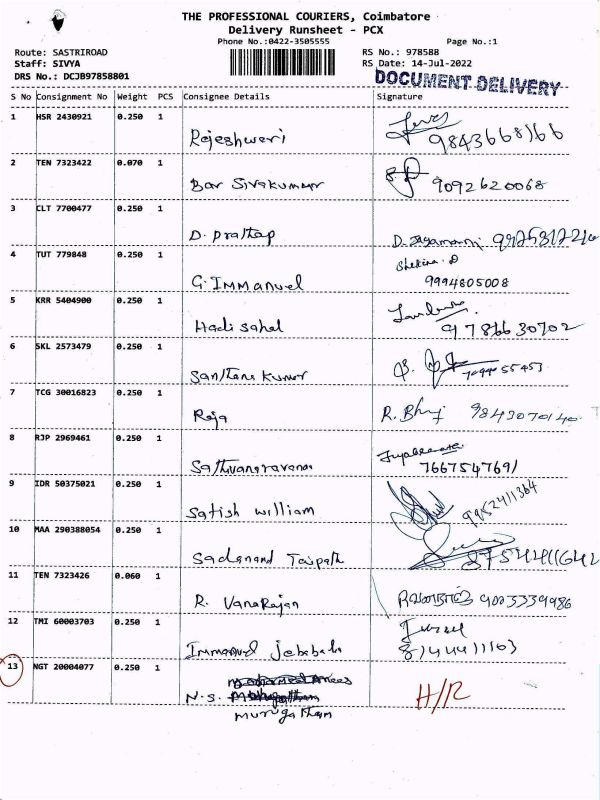 THE PROFESSIONAL COURIERS, Coimbatore
Delivery Runsheet - PCX
Phone No.:0422-3505555
Page No.:1
Route: SASTRIROAD
RS No.: 978588
Staff: SIVYA
RS Date: 14-Jul-2022
DRS No.: DCJB97858801
DOCUMENT DELIVERY
S No Consignment No Weight PCS Consignee Details Signature
1 HSR 2430921 0.250 1
Rejeshweri 9843668166
2 TEN 7323422 0.070 1
Bar Sivakumar 9092620068
3 CLT 7700477 0.250 1
D. prathap D. Jayamani
4 TUT 779848 0.250 1 Shekina. D
G. Immanuel 9994805008
5 KRR 5404900 0.250 1
Hadi sahel 9178663 0702
6 SKL 2573479 0.250 1
Santhana Kumar
7 TCG 30016823 0.250 1
Raja R. Bhuj 9843070140
8 RJP 2969461 0.250 1
7667547691
9 IDR 50375021 0.250 1
Satish william 9952411364
10 MAA 290388054 0.250 1
Sadanand 8754241642
11 TEN 7323426 0.060 1
R. VanaRajan 9003339986
12 TMI 60003703 0.250 1
Immanuel Jebabalu 8144411163
13 NGT 20004077 0.250 1
N.S. H/R
murugatham